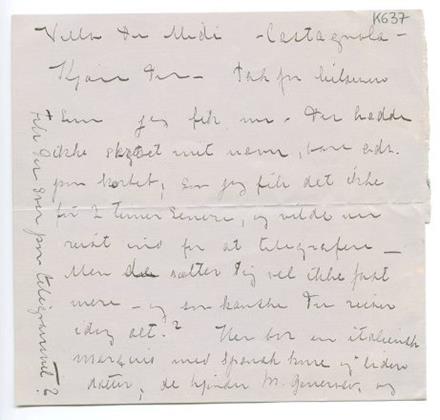 K637
Villa Du Midi - Castagnola -
Kjære Du - Tak for hilsenen
Som jeg fik nu - Du hadde
ikke skrevet mit navn, kun adr.
paa kortet, saa jeg fik det ikke
før 2 timer senere, og vilde nu
reist ind for at telegrafere -
Men sætter Dig vel ikke fast
mere - og saa kanske Du reiser
idag alt? Her bor en italiensk
marquis med spansk kone og liden
datter, de kjender M. og
Fik Du svar paa telegrammet?